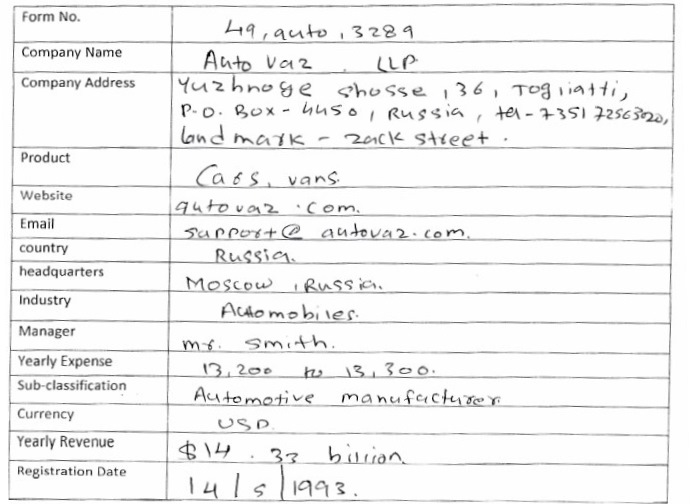 Form No. 49, auto, 3289
Company Name Auto vaz LLP
Company Address Yuzhnoye shosse, 36, Togliatti,
P.O. Box - 4450, Russia, tel - 7351 72563020,
land mark - zack street.
Product Cars, vans.
Website autovaz.com.
Email support@autovaz.com.
country Russia.
headquarters Moscow, Russia.
Industry Automobiles.
Manager mr. smith.
Yearly Expense 13,200 to 13,300.
Sub-classification Automotive manufacturer
Currency USD.
Yearly Revenue $14.33 billion.
Registration Date 14/5/1993.